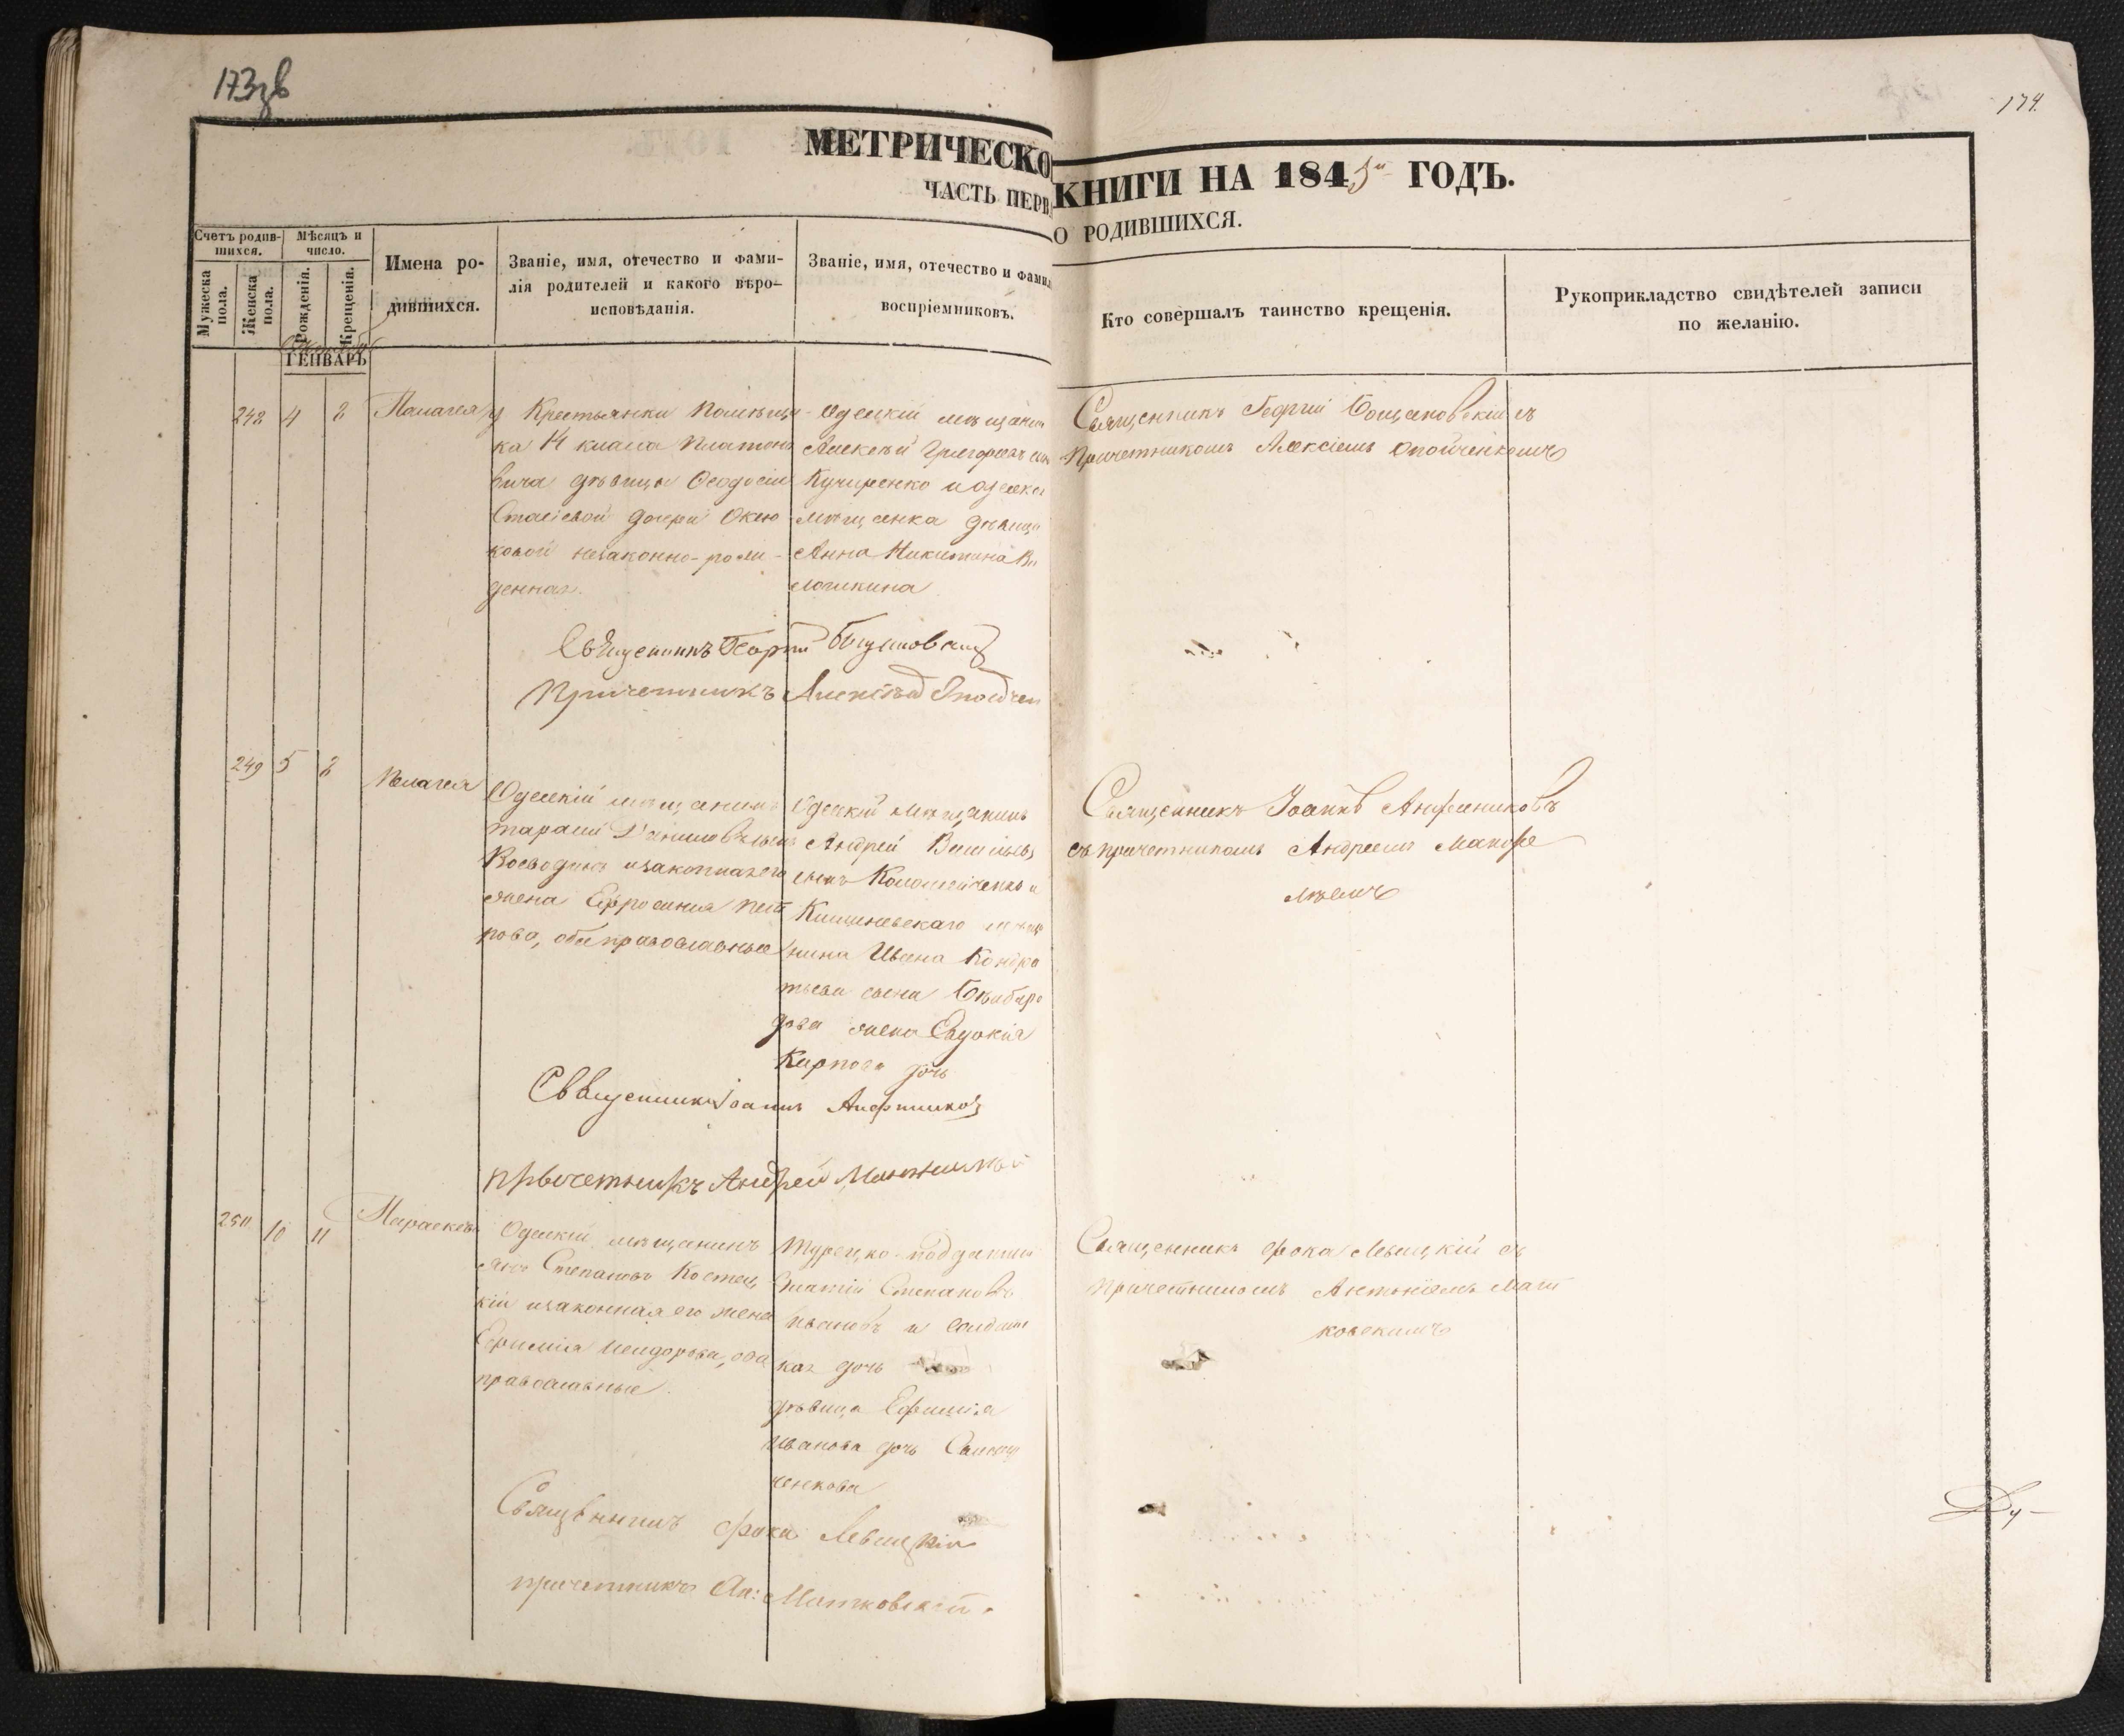 173зв
174.
МЕТРИЧЕСКО
КНИГИ НА 1845 ГОДЪ.
ЧАСТЬ ПЕРВ
О РОДИВШИХСЯ.
Счетъ родив-
шихся.
Мѣсяцъ и
число.
Мужеска
пола.
Женска
пола.
Рожденія.
Крещенія.
Имена ро-
дившихся.
Званіе, имя, отечество и фами-
лія родителей и какого вѣро-
исповѣданія.
Званіе, имя, отечество и фами
воспріемниковъ.
Кто совершалъ таинство крещенія.
Рукоприкладство свидѣтелей записи
по желанію.
ГЕНВАРЬ
248 4 8
у Крестьянки помѣщи-
ка 14 класса Платоно
вича дѣвицы Ѳеодосіи
дочери
ковой незаконно-рож-
денная.
Одескій мѣщанин
Алексѣй Григорьевъ сынъ
Кучиренко и Одеска
мѣщанка дѣвица
Анна Никитина
Священникъ Георгій
Причетникомъ Алексіемъ
Священникъ Георгій
Причетникъ Алексѣй
249 5 8
Пелагея
Одескій мѣщанинъ
Тарасій Даниловъ сынъ
Воеводинъ и законная его
жена Ефросинія Пет
рова, оба православные
Одескій мѣщанинъ
Андрей Васильевъ
сынъ Коломейченко и
Кишиневскаго мѣща
нина Ивана Кондра
тьева сына
жена Евдокія
Карпова дочь
Священникъ Іоаннъ Анфиниковъ
съ причетникомъ Андреемъ
Священникъ Іоаннъ Анфиниковъ
причетникъ Андрей
250 10 11
Параскева
Одескій мѣщанинъ
Степановъ Костец
кій и законная его жена
Ефимія Исидорова, оба
православные.
Турецко-подданный
Степановъ
Ивановъ и Солдатс
кая дочь
дѣвица Ефимія
Иванова дочь
ченкова
Священникъ Фока Левицкій съ
причетникомъ Антоніемъ Мат
ковскимъ
Священникъ Фока Левицкій
причетникъ Ан: Матковскій.